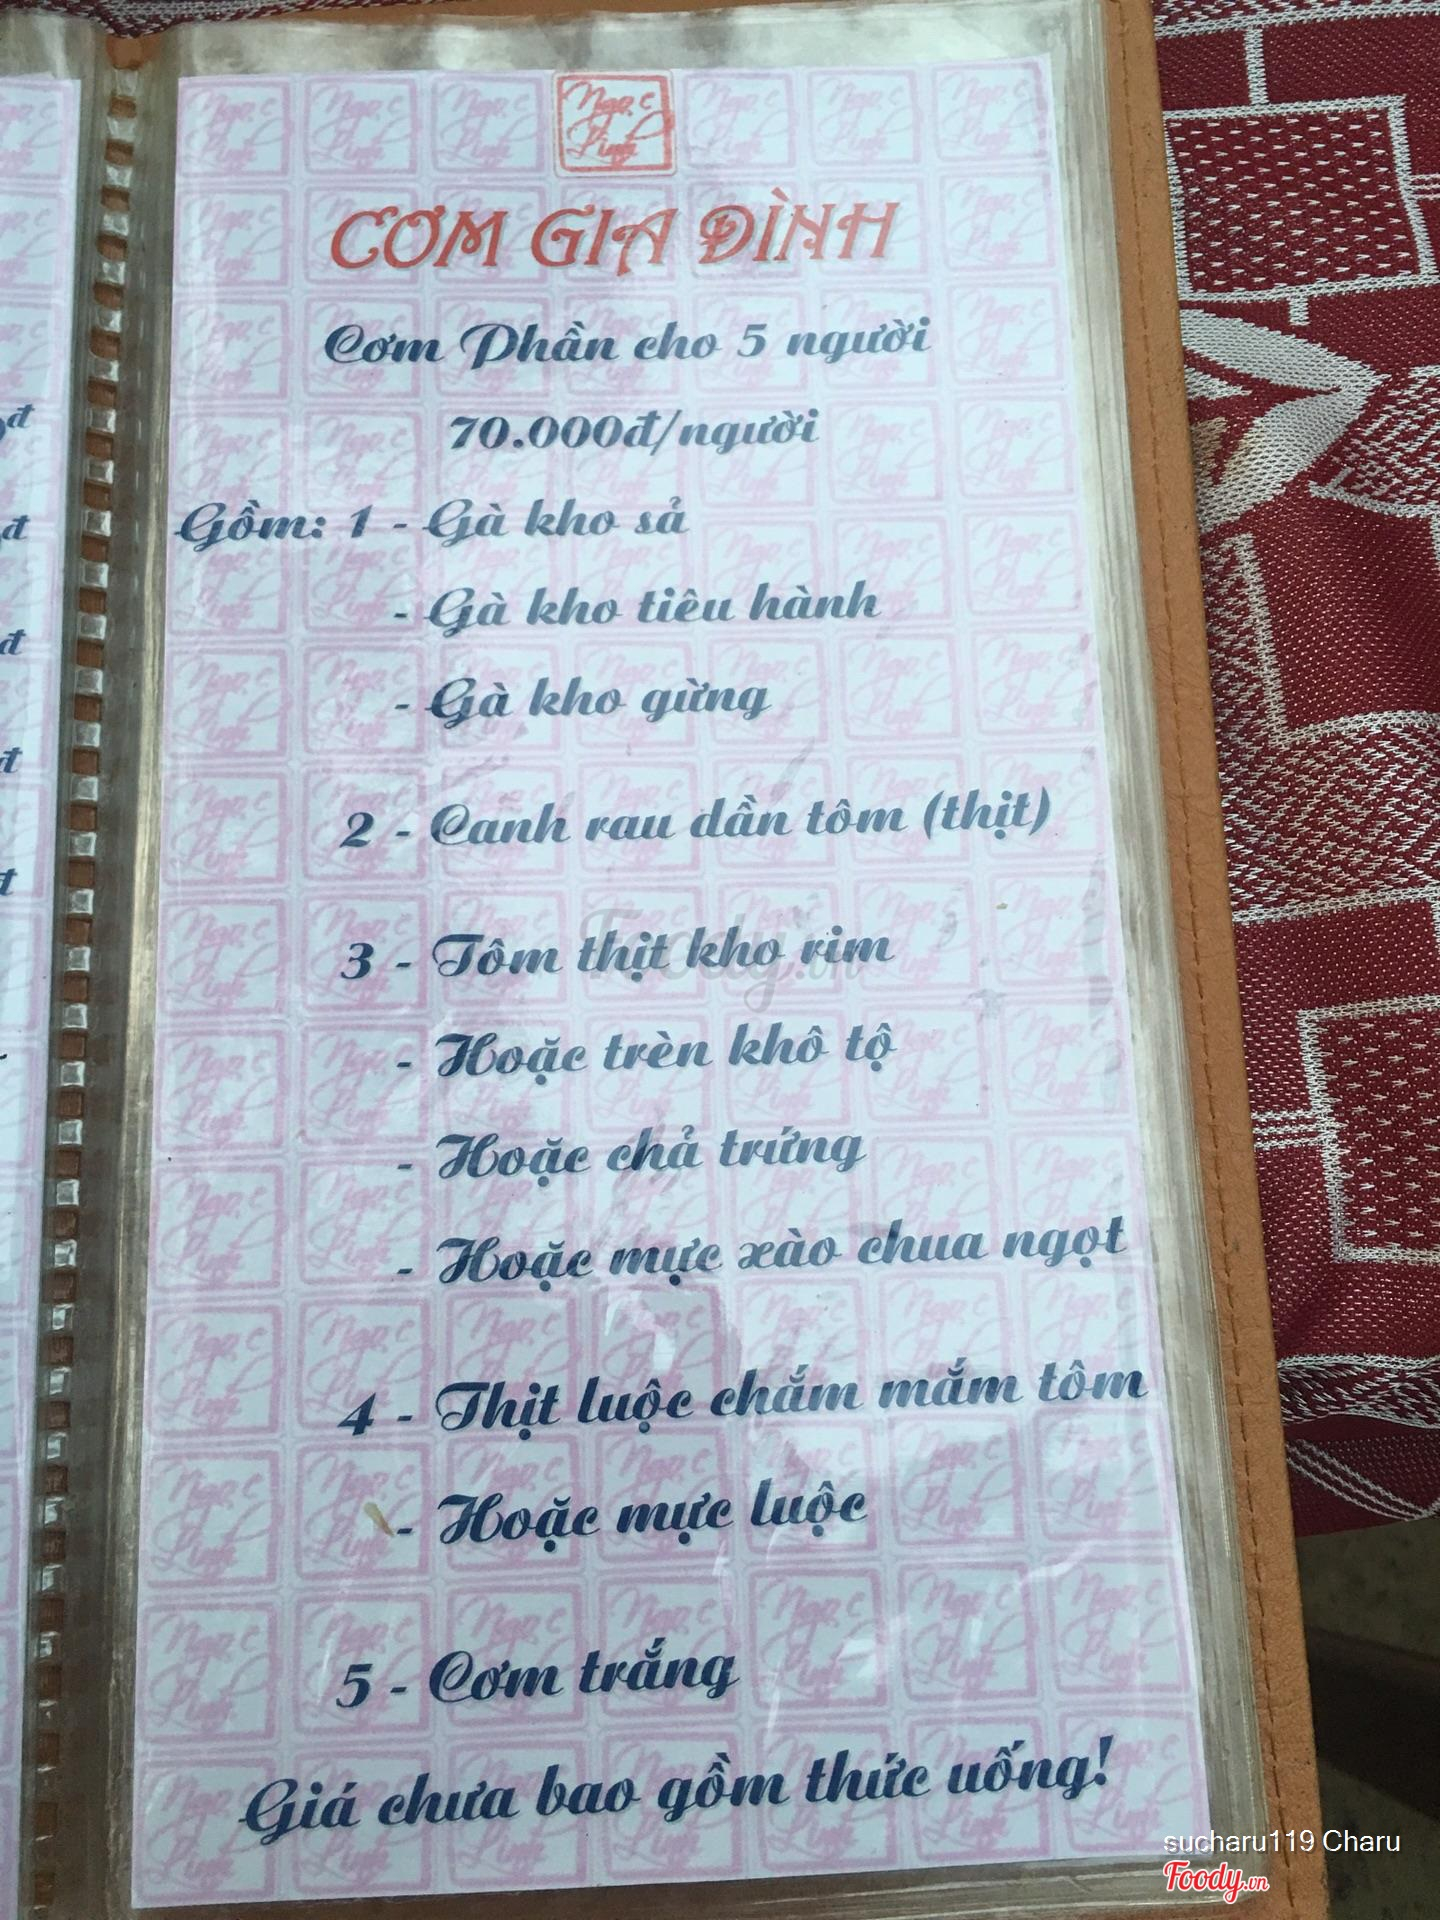 Ngọc
Linh
CƠM GIA ĐÌNH
Cơm Phần cho 5 người
70.000đ/người
Gồm: 1 - Gà kho sả
- Gà kho tiêu hành
- Gà kho gừng
2 - Canh rau dần tôm (thịt)
3 - Tôm thịt kho rim
- Hoặc trèn khô tộ
- Hoặc chả trứng
- Hoặc mực xào chua ngọt
4 - Thịt luộc chắm mắm tôm
- Hoặc mực luộc
5 - Cơm trắng
Giá chưa bao gồm thức uống!
Foody.vn
sucharu119 Charu
Foody.vn